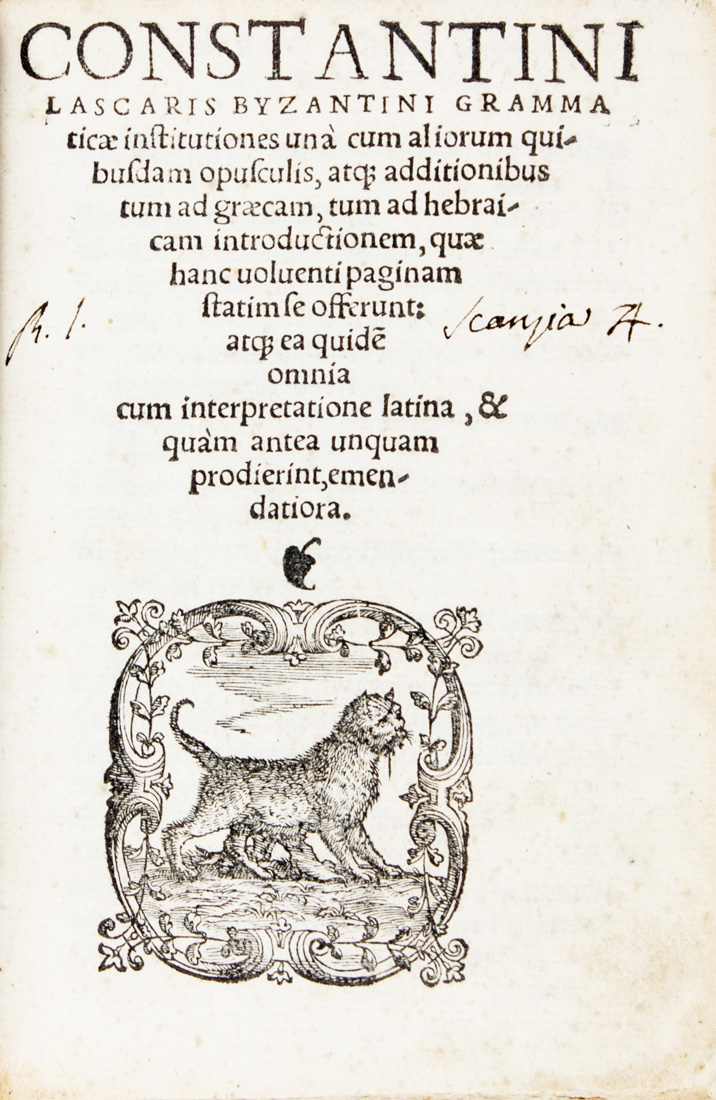 CONSTANTINI
LASCARIS BYZANTINI GRAMMA
ticæ institutiones unà cum aliorum qui-
busdam opusculis, atq; additionibus
tum ad græcam, tum ad hebrai-
cam introductionem, quæ
hanc uoluenti paginam
statim se offerunt:
atq; ea quidē
omnia
cum interpretatione latina, &
quàm antea unquam
prodierint, emen-
datiora.
R. I.
Scanzia H.